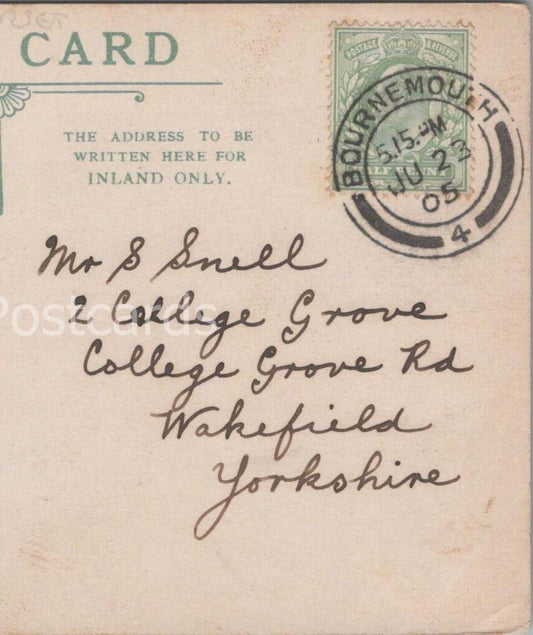 CARD
THE ADDRESS TO BE
WRITTEN HERE FOR
INLAND ONLY.
POSTAGE & REVENUE
BOURNEMOUTH
5.15.PM
JU 23
05
4
Mr S Snell
2 College Grove
College Grove Rd
Wakefield
Yorkshire
Postcards